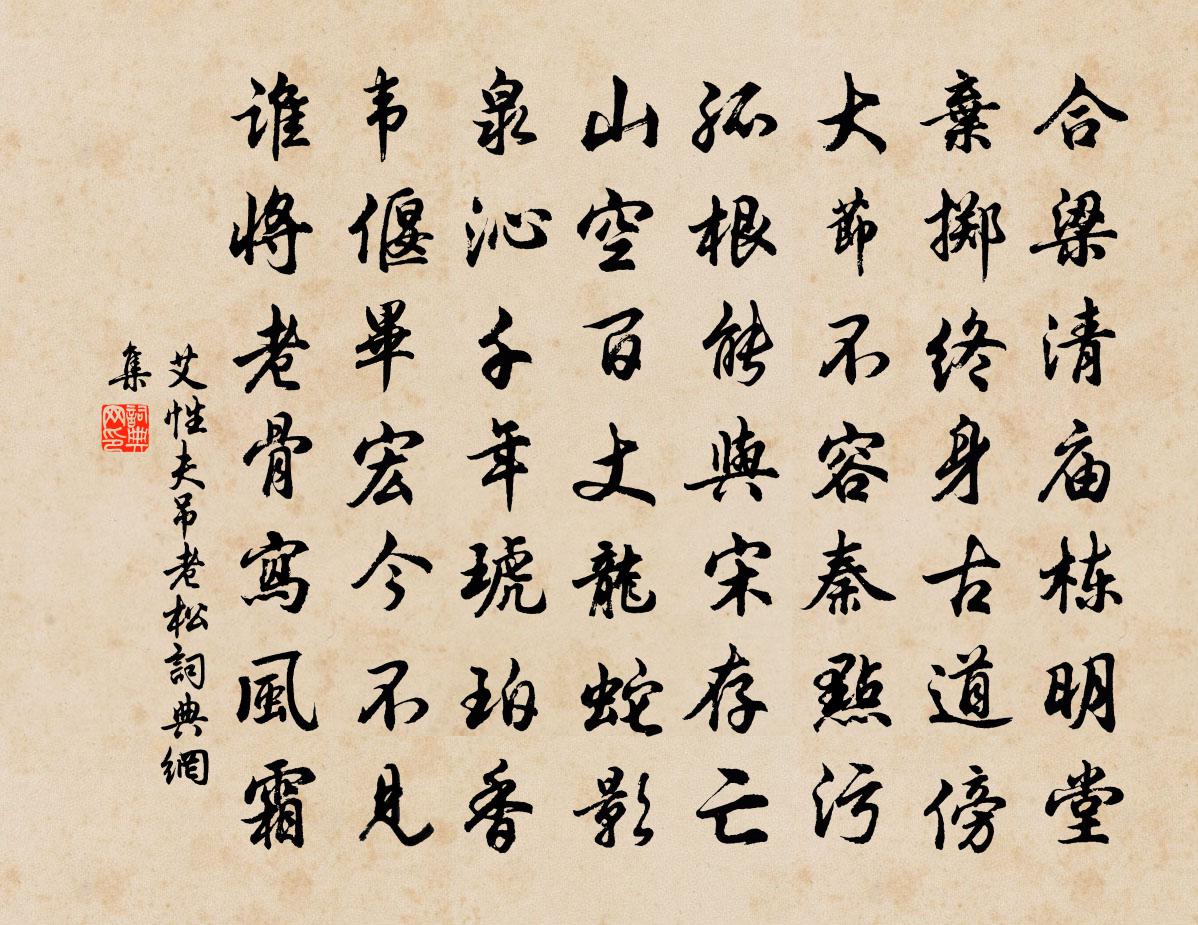 合梁清庙栋明堂
棄掷终身古道傍
大節不容秦點污
孤根能與宋存亡
山空百丈龍蛇影
泉沁千年琥珀香
韦偃畢宏今不見
谁將老骨寫風霜
艾性夫吊老松詞典網
集
詞典
网印